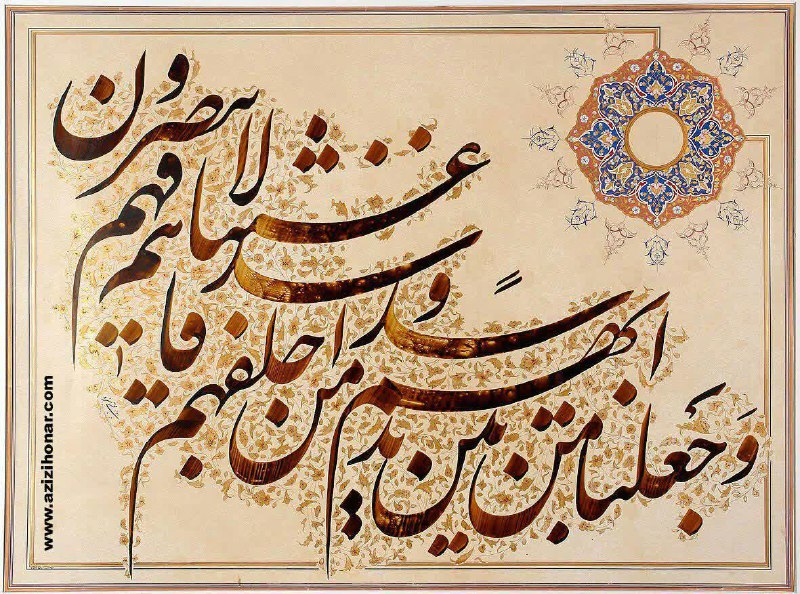 وَ جَعلنا من بین ایدیهم سداً
و من خلفهم سدا
فاغشیناهم فهم لایبصرون
www.azizihonar.com